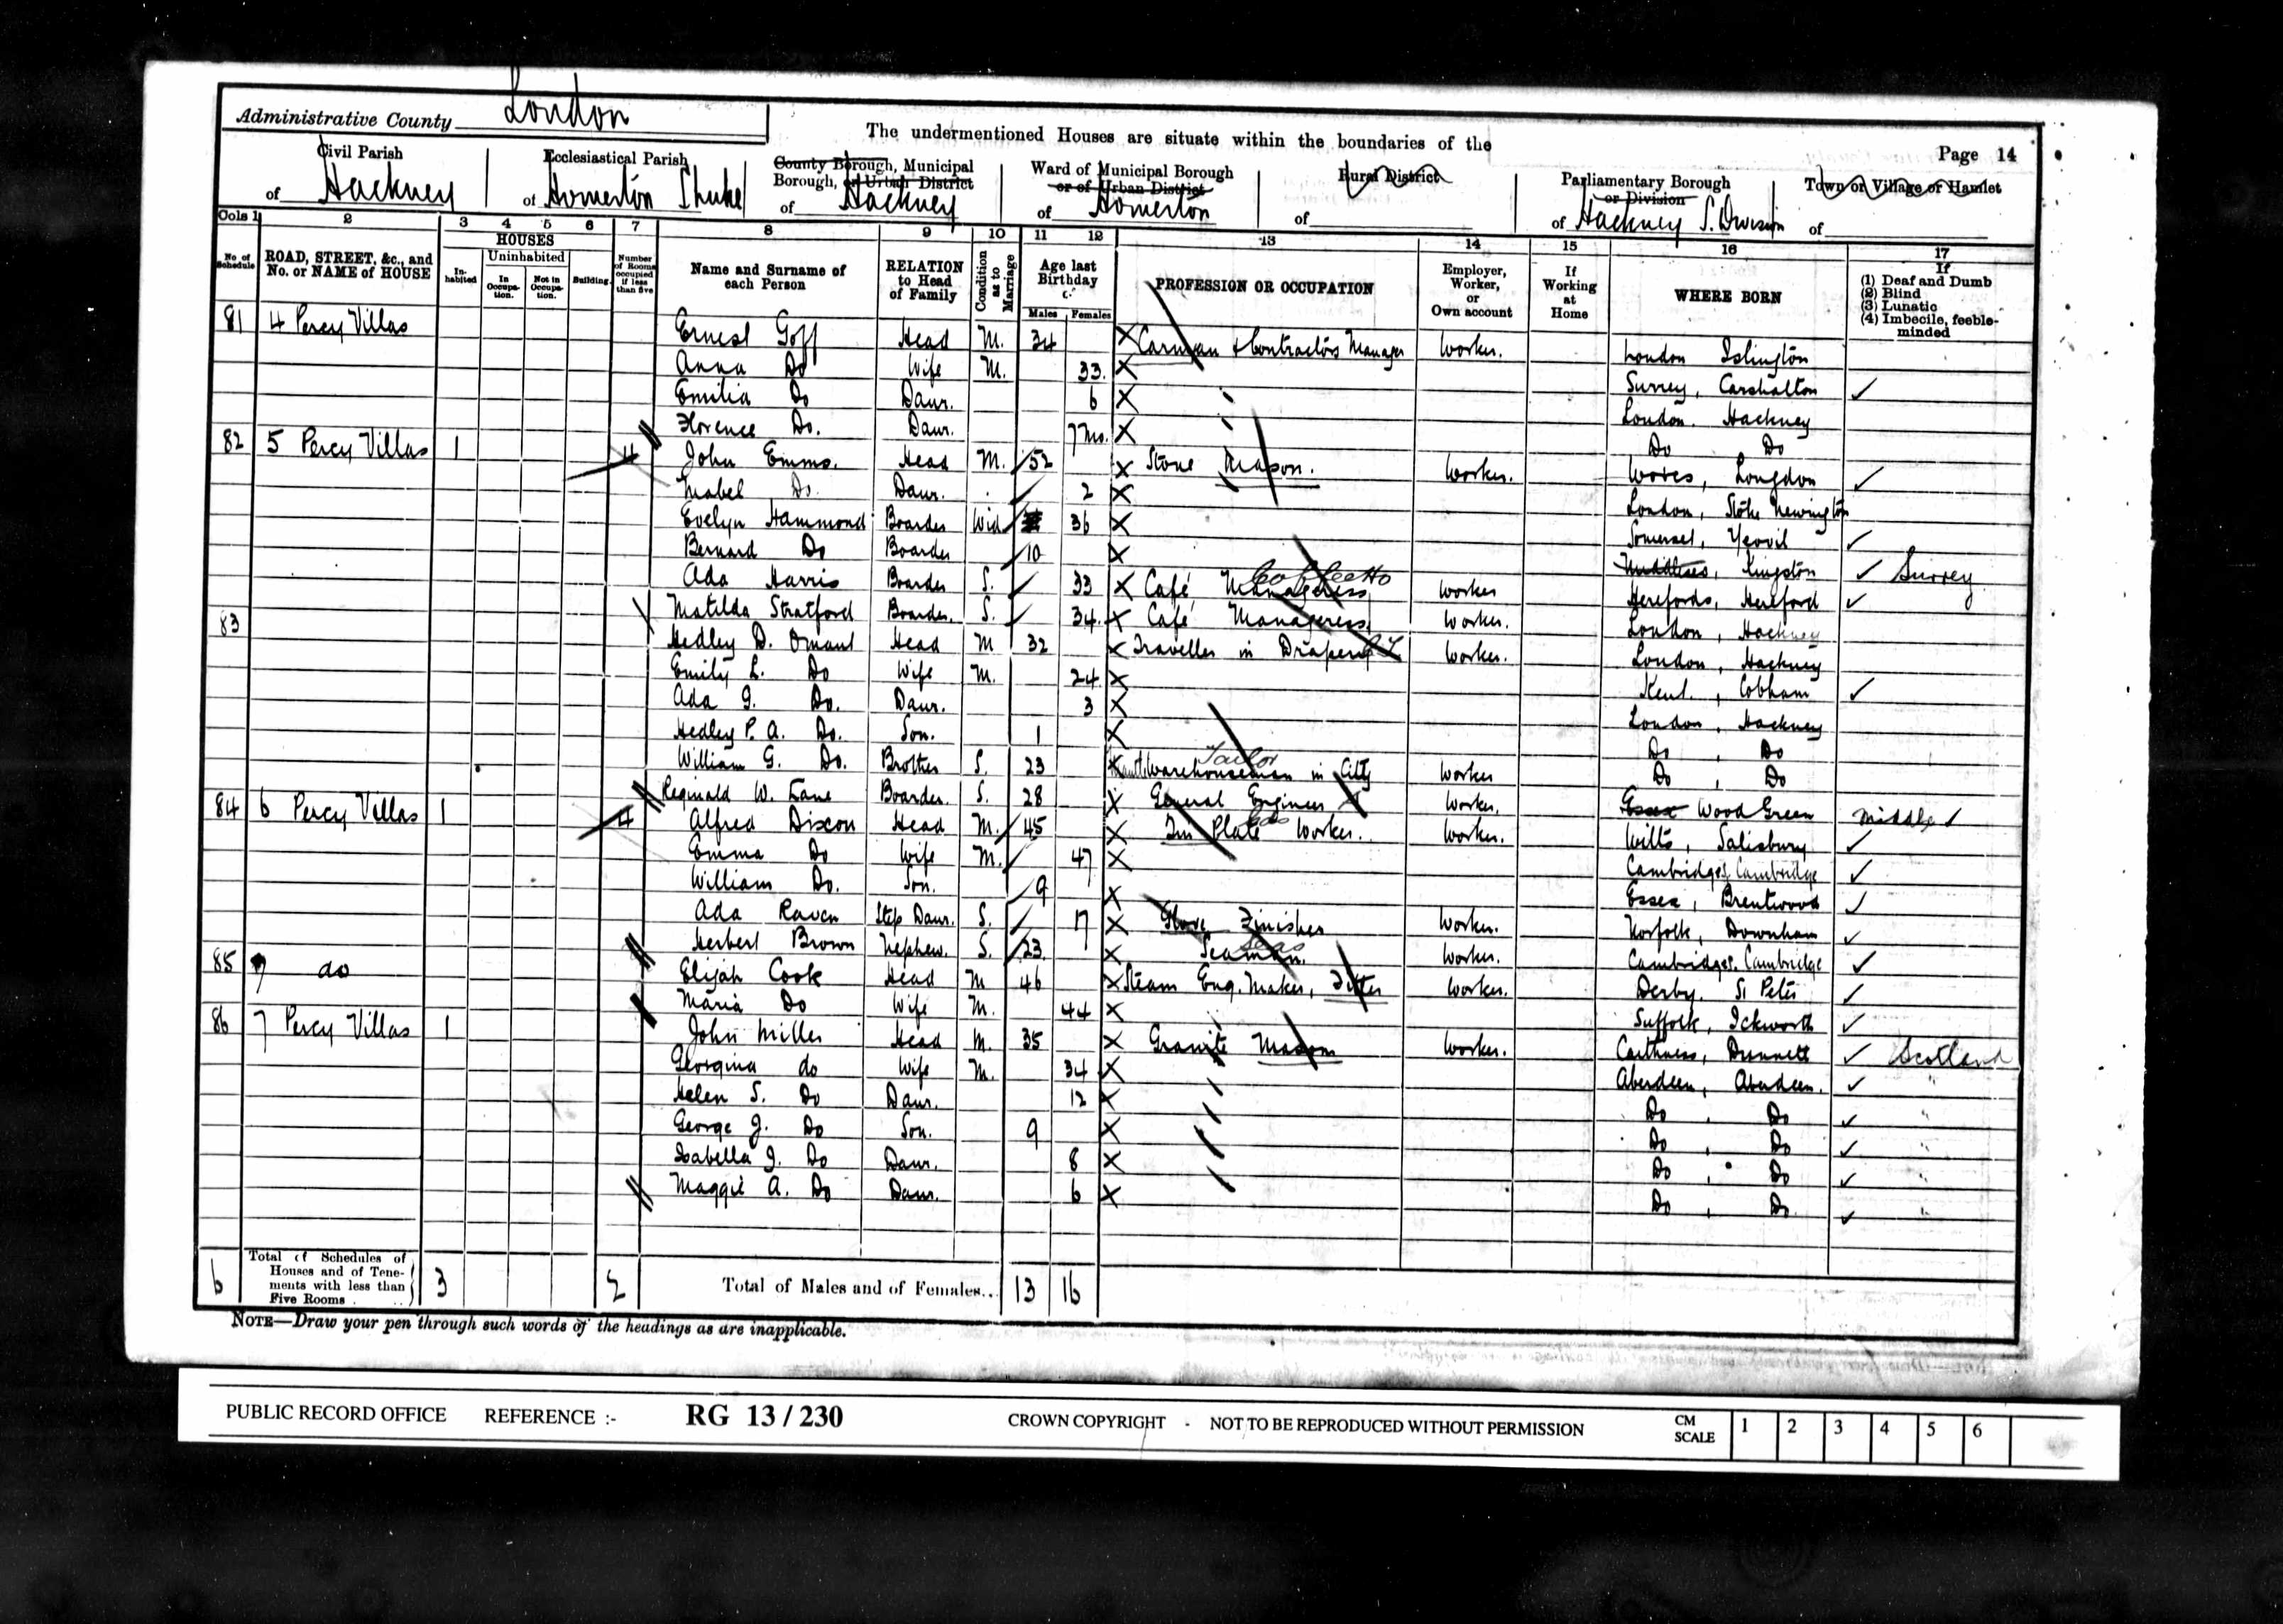 Administrative County London
The undermentioned Houses are situate within the boundaries of the
Page 14
Civil Parish of Hackney
Ecclesiastical Parish of Homerton St Luke
County Borough, Municipal Borough, or Urban District of Hackney
Ward of Municipal Borough or of Urban District of Homerton
Rural District of
Parliamentary Borough or Division of Hackney S. Division
Town or Village or Hamlet of
Cols 1 2 3 4 5 6 7 8 9 10 11 12 13 14 15 16 17
No. of Schedule
ROAD, STREET, &c., and No. or NAME of HOUSE
HOUSES
Inhabited
Uninhabited
In Occupation.
Not in Occupation.
Building.
Number of Rooms occupied if less than five
Name and Surname of each Person
RELATION to Head of Family
Condition as to Marriage
Age last Birthday
Males Females
PROFESSION OR OCCUPATION
Employer, Worker, or Own account
If Working at Home
WHERE BORN
If
(1) Deaf and Dumb
(2) Blind
(3) Lunatic
(4) Imbecile, feeble-minded
81 4 Percy Villas Ernest Goff Head M. 34 Carman & Contractors Manager Worker. London Islington
Anna Do Wife M. 33. Surrey, Carshalton
Emilia Do Daur. 6 London. Hackney
Florence Do. Daur. 7 Mo. Do Do
82 5 Percy Villas 1 4 John Emms. Head M. 52 Stone Mason. Worker. Worces, Longdon
Mabel Do. Daur. 2 London, Stoke Newington
Evelyn Hammond Boarder Wid 36 Somerset, Yeovil
Bernard Do Boarder 10 Middlesex, Kingston Surrey
Ada Harris Boarder S. 33 Café Manageress Worker Herefords, Hereford
Matilda Stratford Boarder. S. 34. Café Manageress Worker. London, Hackney
83 Hedley D. Omant Head M 32 Traveller in Drapery Worker. London, Hackney
Emily L. Do Wife M. 24 Kent, Cobham
Ada G. Do. Daur. 3 London, Hackney
Hedley P. A. Do. Son. 1 Do, Do
William G. Do. Brother S. 23 Tailor Warehouseman in City Worker Do, Do
Reginald W. Lane Boarder. S. 28 General Engineer Worker. Essex Wood Green Middlx
84 6 Percy Villas 1 4 Alfred Discon Head M. 45 Tin Plate Worker. Worker. Wilts, Salisbury
Emma Do Wife M. 47 Cambridges, Cambridge
William Do. Son. 9 Essex, Brentwood
Ada Raven Step Daur. S. 17 Glove Finisher Worker. Norfolk, Downham
Herbert Brown Nephew. S. 23 Seaman. Seas Worker. Cambridges. Cambridge
85 7 do Elijah Cook Head M 46 Steam Eng. Maker, Fitter Worker. Derby. St Peter
Maria Do Wife M. 44 Suffolk, Ickworth
86 7 Percy Villas 1 John Miller Head M. 35 Granite Mason Worker. Caithness, Dunnett Scotland
Georgina do Wife M. 34 Aberdeen, Aberdeen. "
Helen S. Do Daur. 12 Do, Do "
George J. Do Son. 9 Do, Do "
Isabella J. Do Daur. 8 Do, Do "
Maggie A. Do Daur. 6 Do, Do "
6 Total of Schedules of Houses and of Tenements with less than Five Rooms 3 2 Total of Males and of Females... 13 16
NOTE—Draw your pen through such words of the headings as are inapplicable.
PUBLIC RECORD OFFICE REFERENCE :- RG 13 / 230 CROWN COPYRIGHT - NOT TO BE REPRODUCED WITHOUT PERMISSION CM SCALE 1 2 3 4 5 6